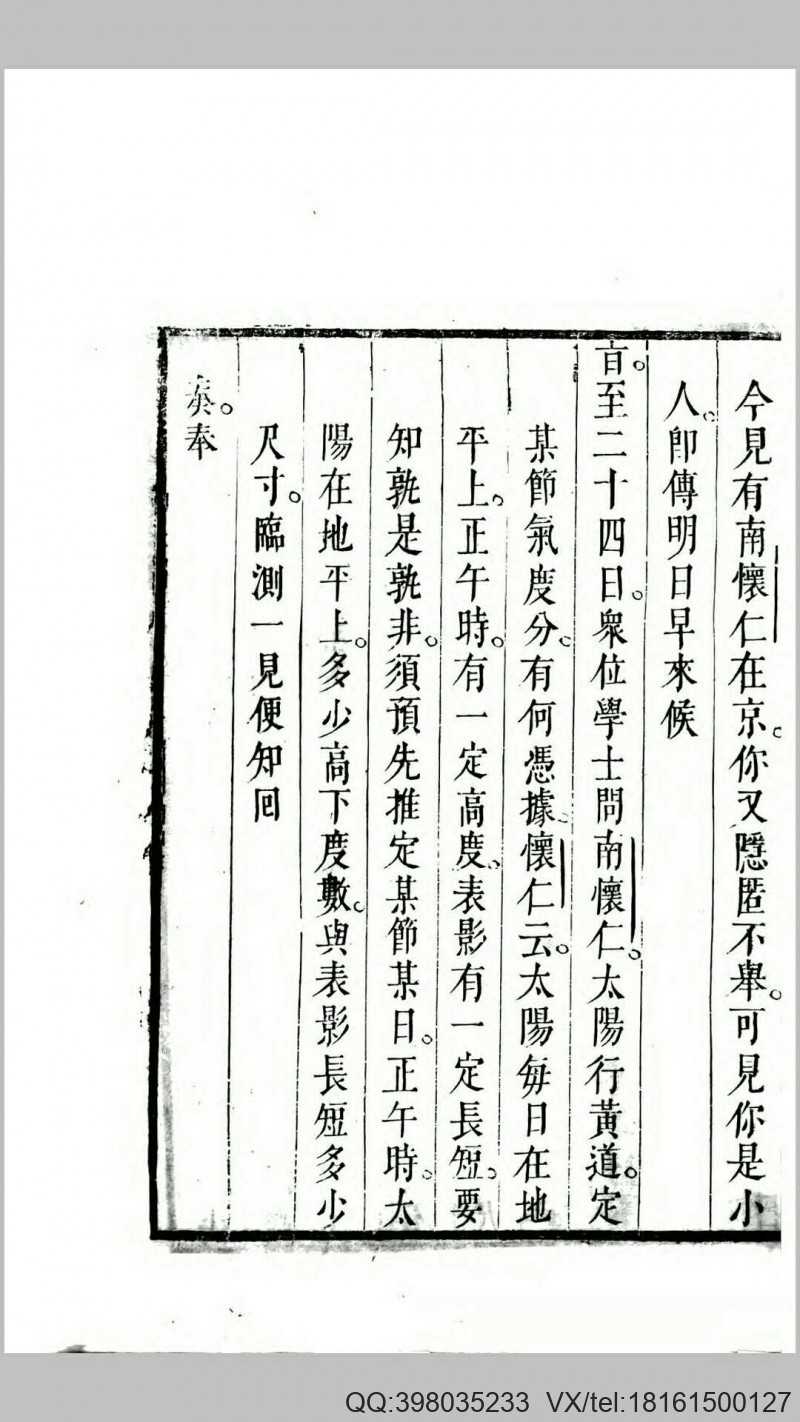 今見有南懷仁在京。你又隱匿不舉。可見你是小
人。卽傳明日早來候
旨。至二十四日。衆位學士問南懷仁。太陽行黃道。定
某節氣度分。有何憑據。懷仁云。太陽每日在地
平上。正午時。有一定高度。表影有一定長短。要
知孰是孰非。須預先推定某節某日。正午時。太
陽在地平上。多少高下度數。與表影長短多少
尺寸。臨測一見便知回
奏。奉
QQ:398035233 VX/tel:18161500127